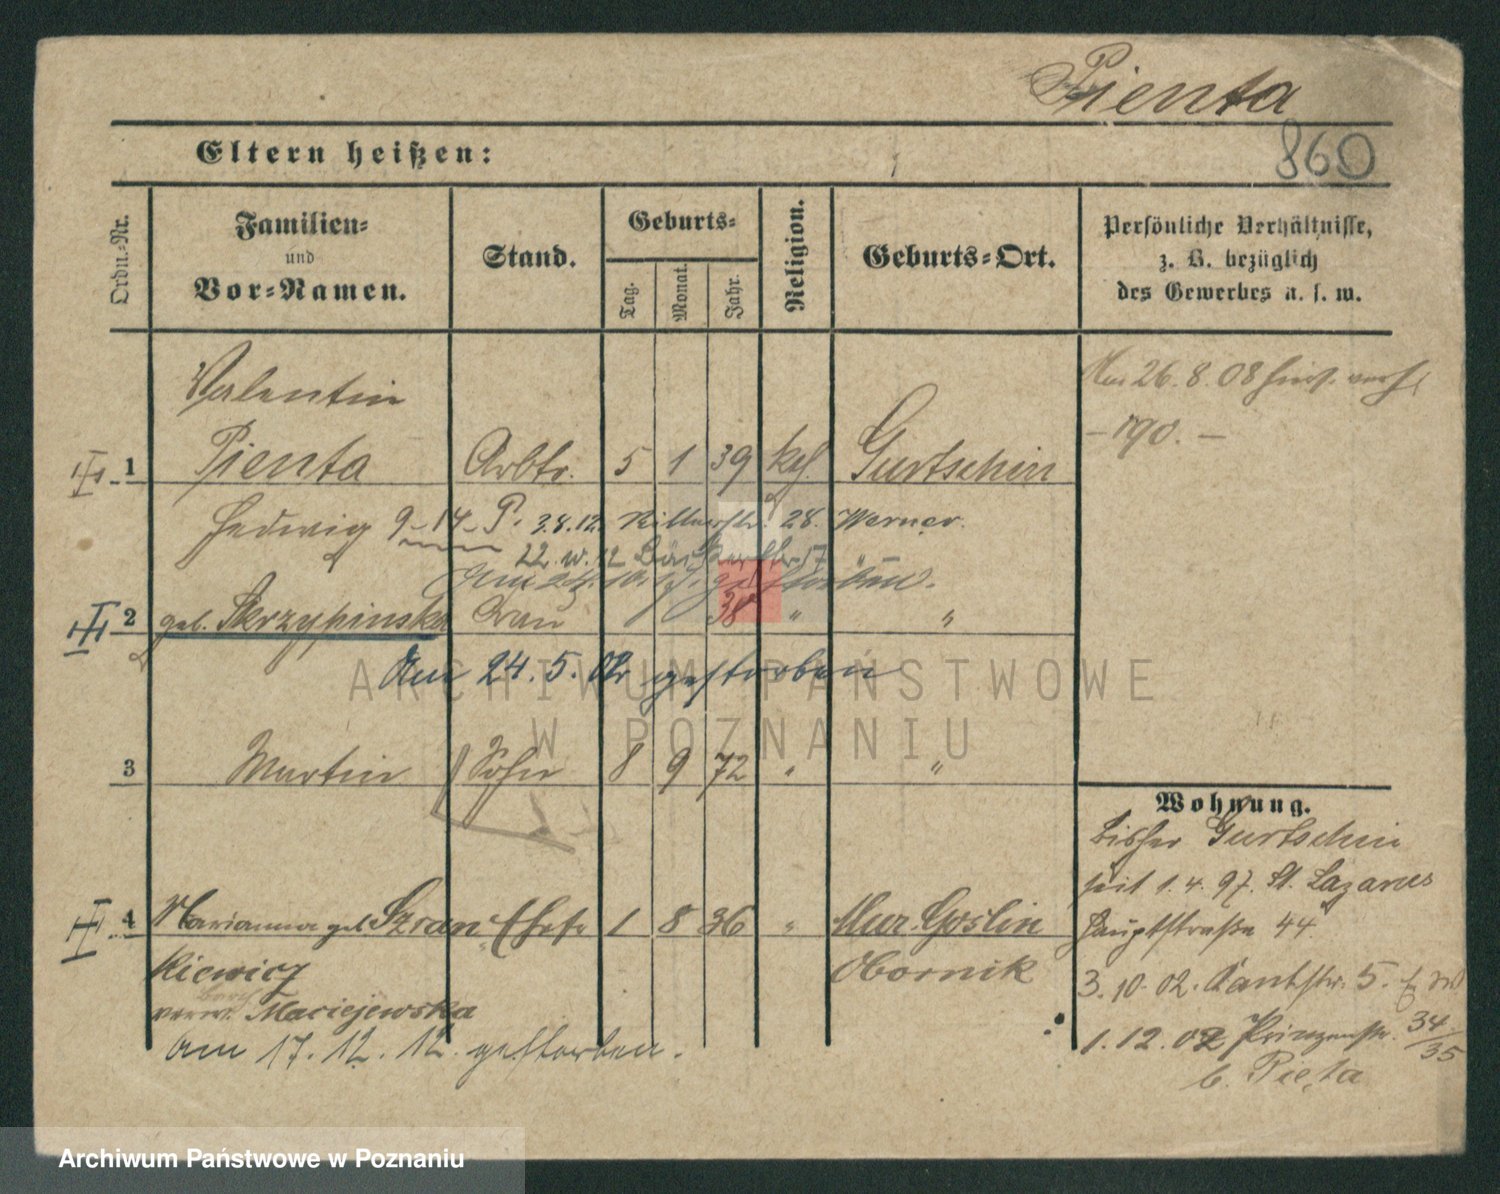 Pienta
860
Eltern heißen:
Ordn.-Nr.
Familien-
und
Vor-Namen.
Stand.
Geburts-
Tag.
Monat.
Jahr.
Religion.
Geburts-Ort.
Persönliche Verhältnisse,
z. B. bezüglich
des Gewerbes u. s. w.
Am 26.8.08
- 190. -
Valentin
1 Pienta Arbtr. 5 1 39 kath. Gurtschin
Hedwig 9-14-P. 3.8.12. Ritterstr. 28. Werner.
22. 12 Bäckerstr. 17
gestorben.
2 geb. Skrzypinska Frau 38 " "
Am 24.5.02 gestorben
3 Martin Sohn 8 9 72 " "
Wohnung.
bisher Gurtschin
seit 1.4.97. St. Lazarus
Hauptstraße 44
3.10.02. Kantstr. 5.
1.12.02 Prinzenstr. 34/35
b. Pieta
4 Marianna geb. Szran- Ehefr. 1 8 36 " Mur. Goslin
kiewicz Obornik
verw. Maciejewska
am 17.12.12. gestorben.
ARCHIWUM PAŃSTWOWE
W POZNANIU
Archiwum Państwowe w Poznaniu